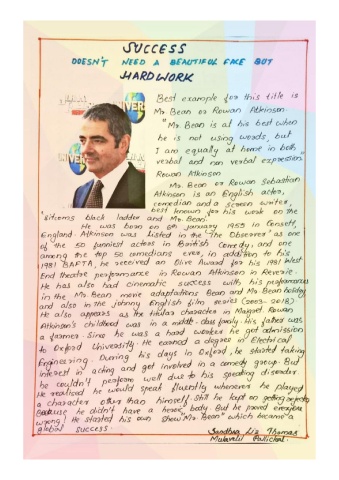 SUCCESS
DOESN'T NEED A BEAUTIFUL FACE BUT
HARDWORK
Best example for this title is
Mr Bean or Rowan Atkinson
"Mr. Bean is at his best when
he is not using words, but
I am equally at home in both
verbal and non verbal expression"
Rowan Atkinson
Mr. Bean or Rowan Sebastian
Atkinson is an English actor,
comedian and a screen writer,
best known for his work on the
sitcoms black ladder and Mr. Bean.
He was born on 6th january 1955 in Consett,
England. Atkinson was listed in the "The Observer" as one
of the 50 funniest actors in British Comedy, and one
among the top 50 comedians ever, in addition to his
1981 BAFTA, he received an Olive Award for his 1981 West
End theatre performance in Rowan Atkinson in Reverie.
He has also had cinematic success with his performances
in the Mr. Bean movie adaptations Bean and Mr Bean holiday
and also in the Johnny English film series (2003-2018)
He also appears as the titular character in Maigret. Rowan
Atkinson's childhood was in a middle class family. His father was
a farmer. Since he was a hard worker he get admission
to Oxford University. He earned a degree in Electrical
Engineering. During his days in Oxford, he started taking
interest in acting and get involved in a comedy group. But
he couldn't perform well due to his speaking disorder
He realised he would speak fluently whenever he played
a character other than himself. Still he kept on getting rejected
Because he didn't have a heroic body. But he proved everyone
wrong! He started his own show "Mr. Bean" which became a
global success.
Sandhra Liz Thomas